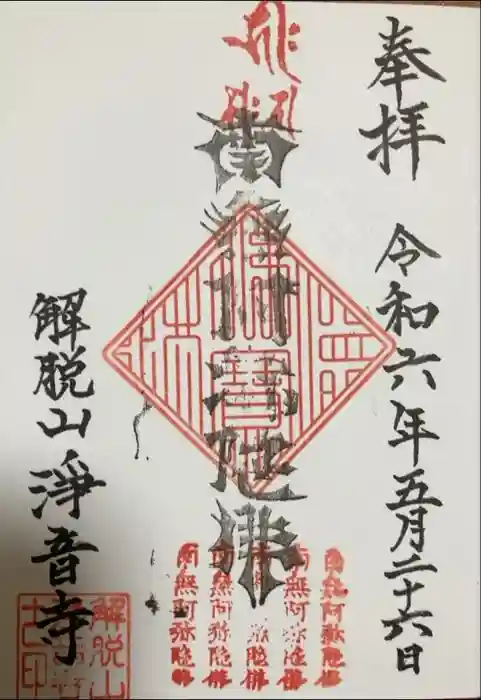 奉拝
令和六年五月二十六日
南無阿弥陀佛
南無阿弥陀佛
南無阿弥陀佛
南無阿弥陀佛
南無阿弥陀佛
南無阿弥陀佛
解脱山淨音寺
解脱山